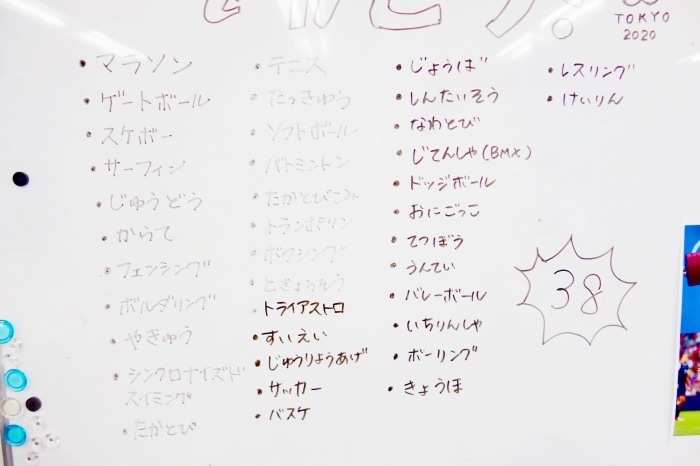 TOKYO
2020
・マラソン
・ゲートボール
・スケボー
・サーフィン
・じゅうどう
・からて
・フェンシング
・ボルダリング
・やきゅう
・シンクロナイズド
スイミング
・たかとび
・テニス
・たっきゅう
・ソフトボール
・バトミントン
・たかとびこみ
・トランポリン
・ボクシング
・ときょうそう
・トライアストロ
・すいえい
・じゅうりょうあげ
・サッカー
・バスケ
・じょうば
・しんたいそう
・なわとび
・じてんしゃ(BMX)
・ドッジボール
・おにごっこ
・てつぼう
・うんてい
・バレーボール
・いちりんしゃ
・ボーリング
・きょうほ
・レスリング
・けいりん
38